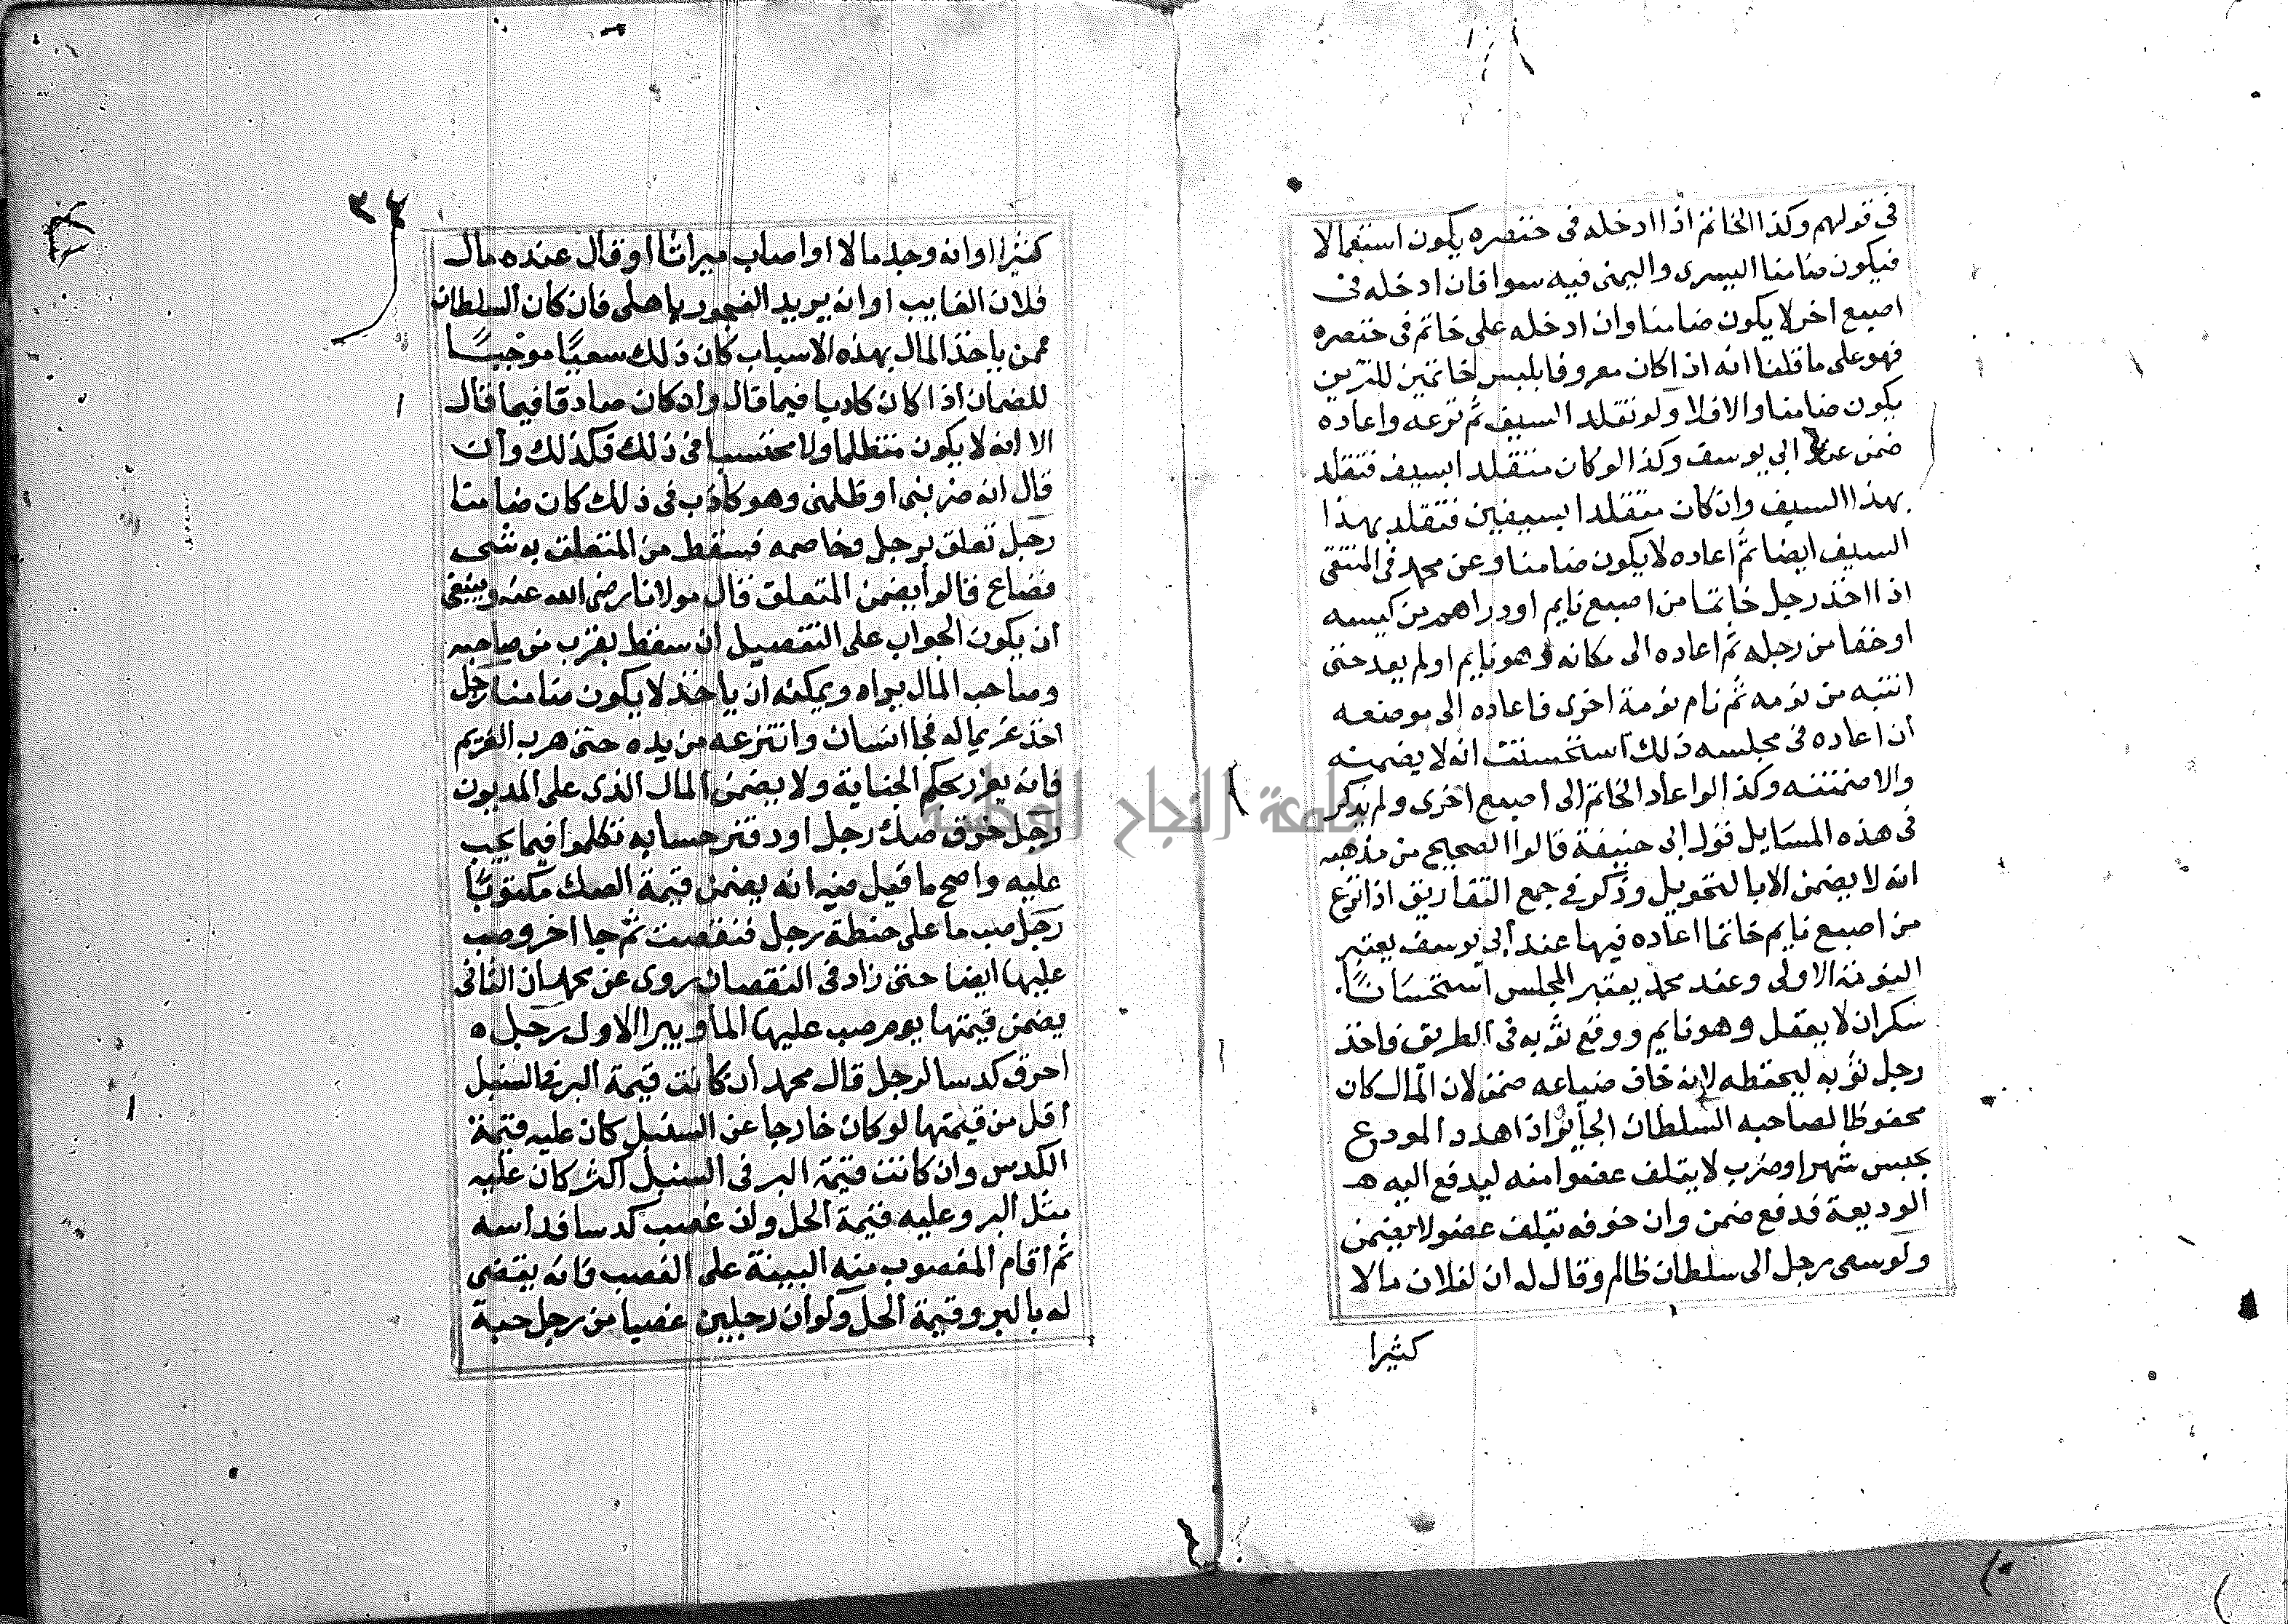 في قولهم وكذا الخاتم اذا ادخله في خنصره يكون استعمالا
فيكون ضامنا اليسرى واليمنى فيه سوا فان ادخله في
اصبع اخر لا يكون ضامنا وان ادخله على خاتم في خنصره
فهو على ما قلنا انه اذا كان معروفا بلبس خاتمين للتزين
يكون ضامنا والا فلا ولو تقلد السيف ثم نزعه واعاده
ضمن عند ابي يوسف وكذا لو كان متقلدا بسيف فتقلد
بهذا السيف وان كان متقلدا بسيفين فتقلد بهذا
السيف ايضا ثم اعاده لا يكون ضامنا وعن محمد في المنتقى
اذا اخذ رجل خاتما من اصبع نايم او دراهم من كيسه
او خفا من رجله ثم اعاده الى مكانه وهو نايم او لم يعد حتى
انتبه من نومه ثم نام نومة اخرى فاعاده الى موضعه
ان اعاده في مجلسه ذلك استحسنت انه لا يضمنه
والا ضمنته وكذا لو اعاد الخاتم الى اصبع اخرى ولم يذكر
في هذه المسايل قول ابي حنيفة قالوا الصحيح من مذهبه
انه لا يضمن الا بالتحويل وذكر في جمع التفاريق اذا نزع
من اصبع نايم خاتما اعاده فيها عند ابي يوسف يعتبر
النومة الاولى وعند محمد يعتبر المجلس استحسانا
سكران لا يعقل وهو نايم ووقع ثوبه في الطريق فاخذ
رجل ثوبه ليحفظه لانه خاف ضياعه ضمن لان المال كان
محفوظا لصاحبه السلطان الجاير اذا هدد المودع
بحبس شهر او ضرب لا يتلف عضوا منه ليدفع اليه
الوديعة فدفع ضمن وان خوفه بتلف عضو لا يضمن
ولو سعى رجل الى سلطان ظالم وقال له ان لفلان مالا
كثيرا
٣٤
كثيرا او انه وجد مالا او اصاب ميراثا او قال عنده مال
فلان الغايب او انه يريد الفجور باهلي فان كان السلطان
ممن ياخذ المال بهذه الاسباب كان ذلك سعيا موجبا
للضمان اذا كان كاذبا فيما قال وان كان صادقا فيما قال
الا انه لا يكون متظلما ولا محتسبا في ذلك فكذلك وان
قال انه ضربني او ظلمني وهو كاذب في ذلك كان ضامنا
رجل تعلق برجل وخاصمه فسقط من المتعلق به شي
فضاع قالوا يضمن المتعلق قال مولانا رضى الله عنه وينبغي
ان يكون الجواب على التفصيل ان سقط بقرب من صاحبه
وصاحب المال يراه ويمكنه ان ياخذ لا يكون ضامنا رجل
اخذ غريما له فجا انسان وانتزعه من يده حتى هرب الغريم
فانه يعزر بحكم الجناية ولا يضمن المال الذي على المديون
رجل خرق صك رجل او دفتر حسابه تكلموا فيما يجب
عليه واصح ما قيل فيه انه يضمن قيمة الصك مكتوبا
رجل صب ما على حنطة رجل فنقصت ثم جا اخر وصب
عليها ايضا حتى زاد في النقصان روى عن محمد ان الثاني
يضمن قيمتها يوم صب عليها الما ويبرا الاول رجل ه
احرق كدسا لرجل قال محمد ان كانت قيمة البر في السنبل
اقل من قيمتها لو كان خارجا عن السنبل كان عليه قيمة
الكدس وان كانت قيمة البر في السنبل اكثر كان عليه
مثل البر وعليه قيمة الحل وان غصب كدسا فداسه
ثم اقام المغصوب منه البينة على الغصب فانه يقضى
له بالبر وقيمة الحل ولو ان رجلين غصبا من رجل حبة
جامعة النجاح الوطنية